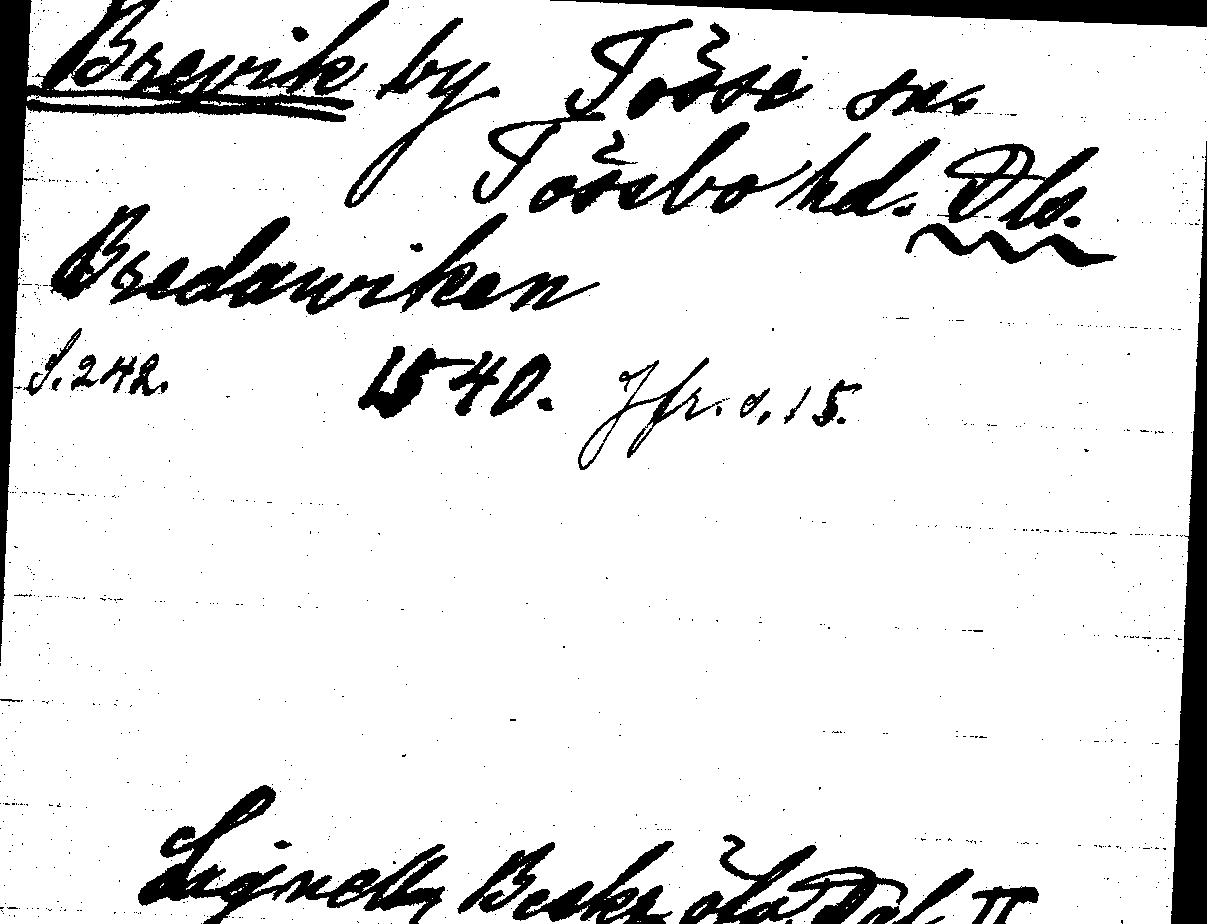 Brevik by. Tösse sn.
Tössbo hd. Dls.
Bredawiken
S. 242. 1540. Jfr. s. 15.
Lignells Beskr. öfv. Dal. II